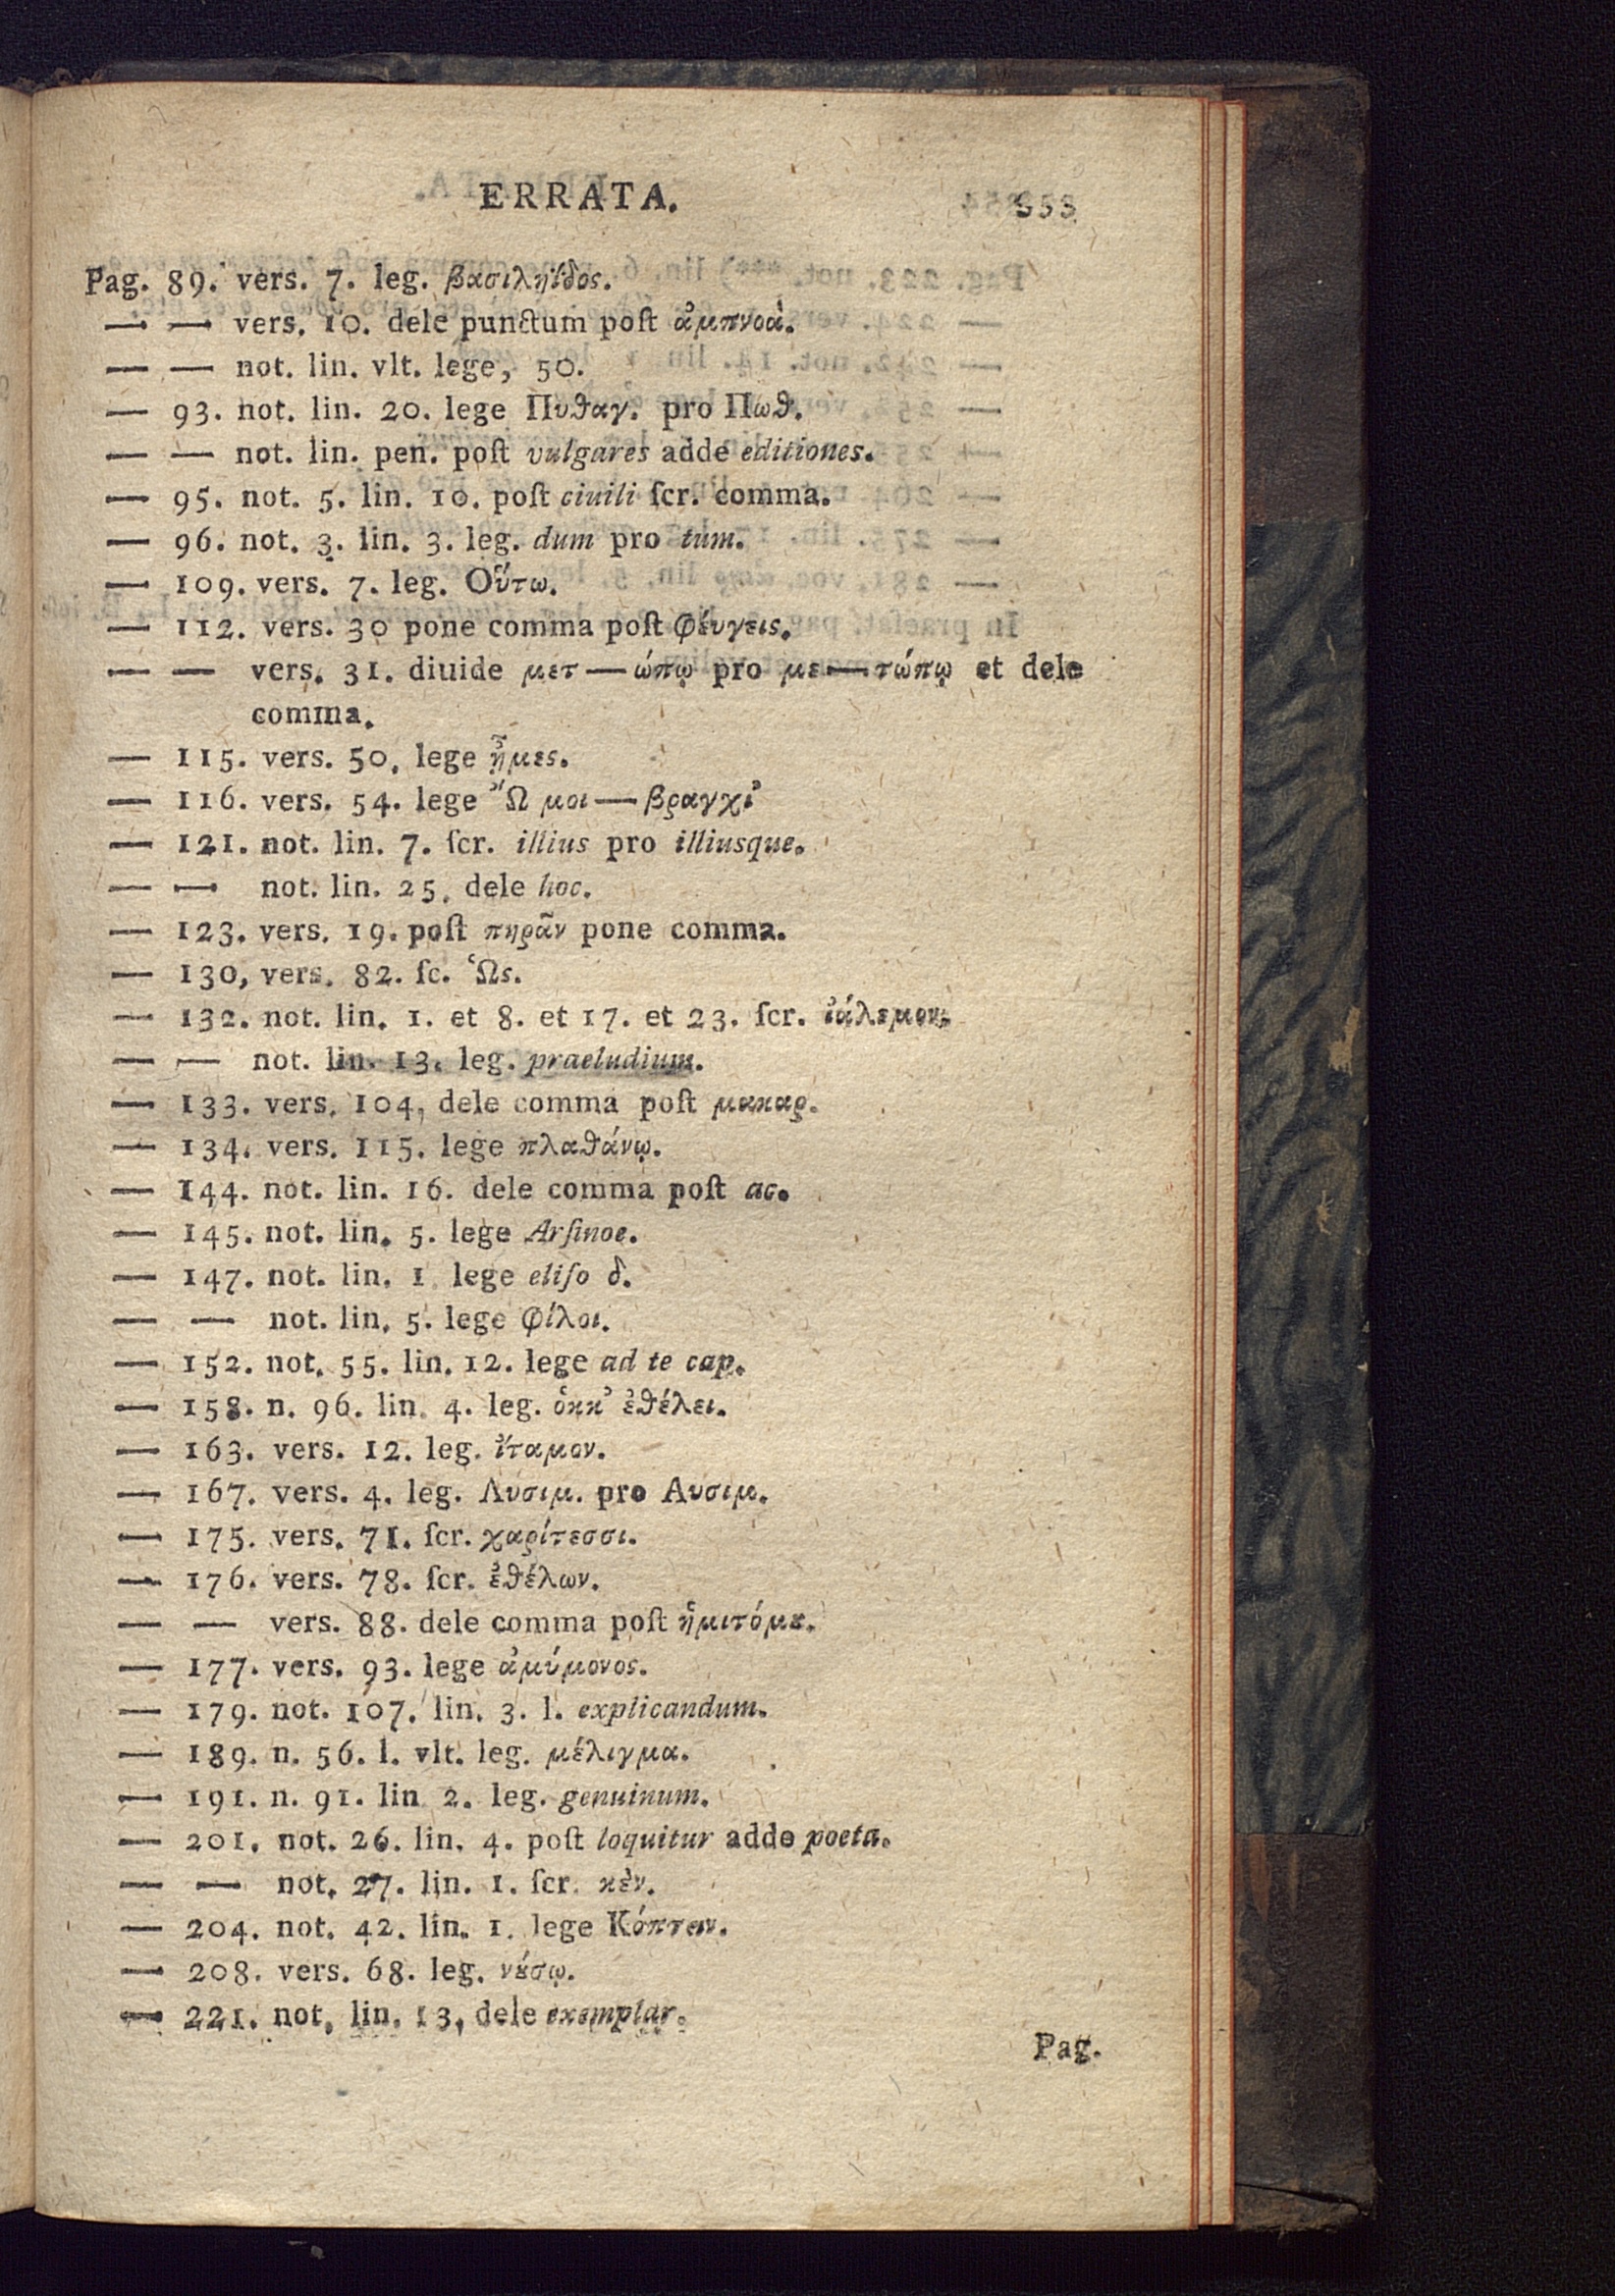 ERRATA. 353
Pag. 89. vers. 7. leg. βασιληΐδος.
— — vers. 10. dele punctum poſt ἀμπνοὰ.
— — not. lin. vlt. lege, 50.
— 93. not. lin. 20. lege Πυθαγ. pro Πωθ.
— — not. lin. pen. poſt vulgares adde editiones.
— 95. not. 5. lin. 10. poſt ciuili ſcr. comma.
— 96. not. 3. lin. 3. leg. dum pro tum.
— 109. vers. 7. leg. Οὕτω.
— 112. vers. 30 pone comma poſt φέυγεις.
— — vers. 31. diuide μετ — ώπῳ pro με — τώπῳ et dele
comma.
— 115. vers. 50. lege ᾖμες.
— 116. vers. 54. lege Ὤ μοι — βραγχὶ
— 121. not. lin. 7. ſcr. illius pro illiusque.
— — not. lin. 25. dele hoc.
— 123. vers. 19. poſt πηρᾶν pone comma.
— 130, vers. 82. ſc. Ὡς.
— 132. not. lin. 1. et 8. et 17. et 23. ſcr. ἰάλεμον.
— — not. lin. 13. leg. praeludium.
— 133. vers. 104, dele comma poſt μακαρ.
— 134. vers. 115. lege πλαθάνῳ.
— 144. not. lin. 16. dele comma poſt ac.
— 145. not. lin. 5. lege Arſinoe.
— 147. not. lin. 1 lege eliſo δ.
— — not. lin. 5. lege φίλοι.
— 152. not. 55. lin. 12. lege ad te cap.
— 158. n. 96. lin. 4. leg. ὁκκ' ἐθέλει.
— 163. vers. 12. leg. ἴταμον.
— 167. vers. 4. leg. Λυσιμ. pro Αυσιμ.
— 175. vers. 71. ſcr. χαρίτεσσι.
— 176. vers. 78. ſcr. ἐθέλων.
— — vers. 88. dele comma poſt ἡμιτόμȣ.
— 177. vers. 93. lege ἀμύμονος.
— 179. not. 107. lin. 3. l. explicandum.
— 189. n. 56. l. vlt. leg. μέλιγμα.
— 191. n. 91. lin 2. leg. genuinum.
— 201. not. 26. lin. 4. poſt loquitur adde poeta.
— — not. 27. lin. 1. ſcr. κἐν.
— 204. not. 42. lin. 1. lege Κόπτειν.
— 208. vers. 68. leg. νȣ́σῳ.
— 221. not, lin. 13, dele exemplar.
Pag.